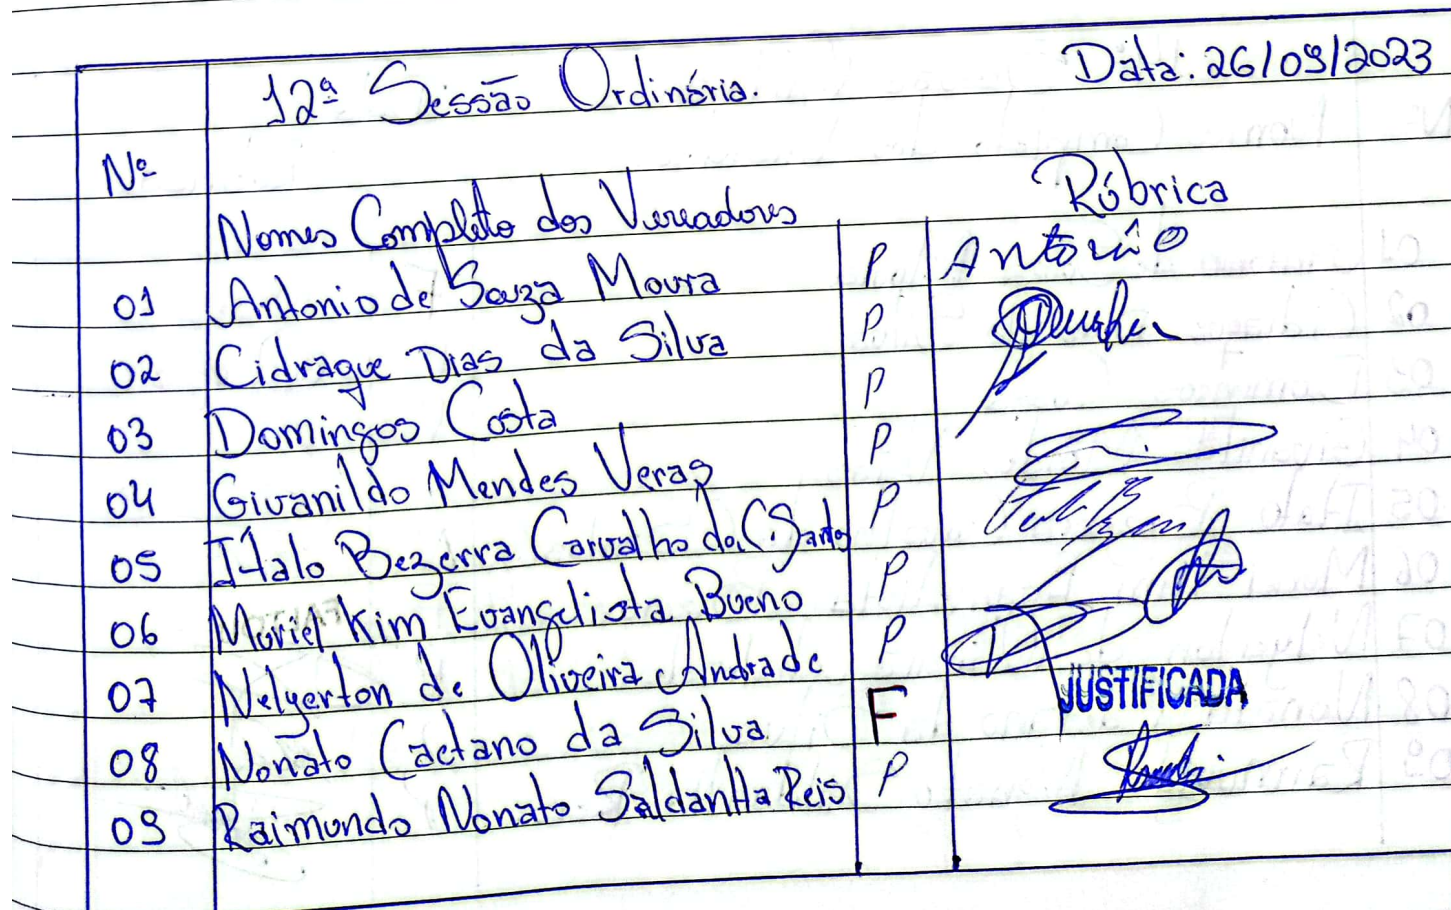 12ª Sessão Ordinária. Data: 26/09/2023
Nº
Nomes Completo dos Vereadores Rúbrica
01 Antonio de Souza Moura P Antonio
02 Cidraque Dias da Silva P
03 Domingos Costa P
04 Givanildo Mendes Veras P
05 Ítalo Bezerra Carvalho do C. Santos P
06 Moriel Kim Evangelista Bueno P
07 Nelyerton de Oliveira Andrade P
08 Nonato Caetano da Silva F JUSTIFICADA
09 Raimundo Nonato Saldantta Reis P